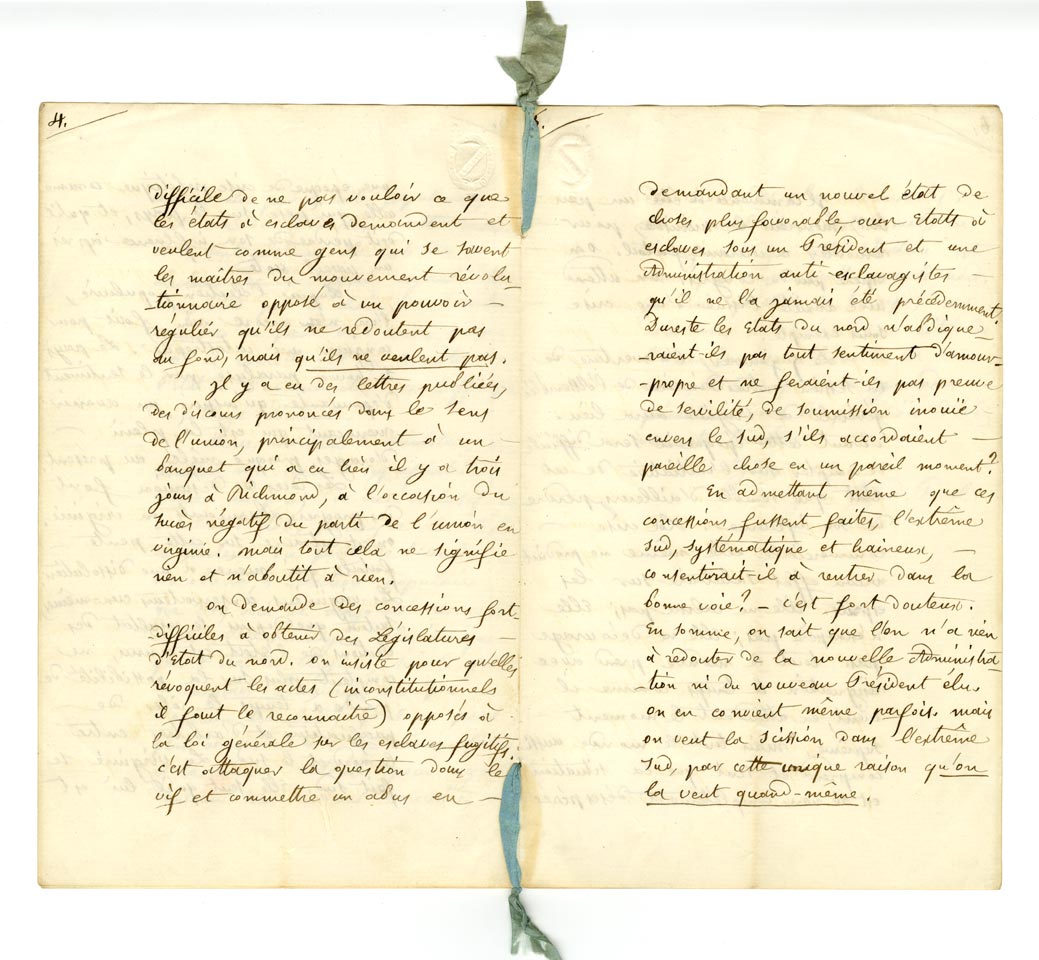 4.
difficile de ne pas vouloir ce que
les états à esclaves demandent et
veulent comme gens qui se savent
les maîtres du mouvement révolu-
-tionnaire opposé à un pouvoir —
régulier qu'ils ne redoutent pas
au fond, mais qu'ils ne veulent pas.
Il y a eu des lettres publiées,
des discours prononcés dans le sens
de l'union, principalement à un —
banquet qui a eu lieu il y a trois
jours à Richmond, à l'occasion du
succès négatif du parti de l'union en
virginie. mais tout cela ne signifie
rien et n'aboutit à rien.
on demande des concessions fort-
difficiles à obtenir des Législatures —
d'Etat du nord. on insiste pour qu'elles
révoquent les actes (inconstitutionnels
il faut le reconnaitre) opposés à
la loi générale sur les esclaves fugitifs.
c'est attaquer la question dans le
vif et commettre un abus en —
5.
demandant un nouvel état de
choses plus favorable aux Etats à
esclaves sous un Président et une
Administration anti-esclavagistes —
qu'il ne l'a jamais été précédemment.
Dureste les Etats du nord n'abdique-
-raient-ils pas tout sentiment d'amour-
-propre et ne feraient-ils pas preuve
de servilité, de soumission inouïe —
envers le sud, s'ils accordaient —
pareille chose en un pareil moment?
En admettant même que ces
concessions fussent faites, l'extrême
sud, systématique et haineux, —
consentirait-il à rentrer dans la
bonne voie? — c'est fort douteux.
En somme, on sait que l'on n'a rien
à redouter de la nouvelle Administra-
-tion ni du nouveau Président élu.
on en convient même parfois. mais
on veut la scission dans l'extrême
sud, par cette unique raison qu'on
la veut quand-même.